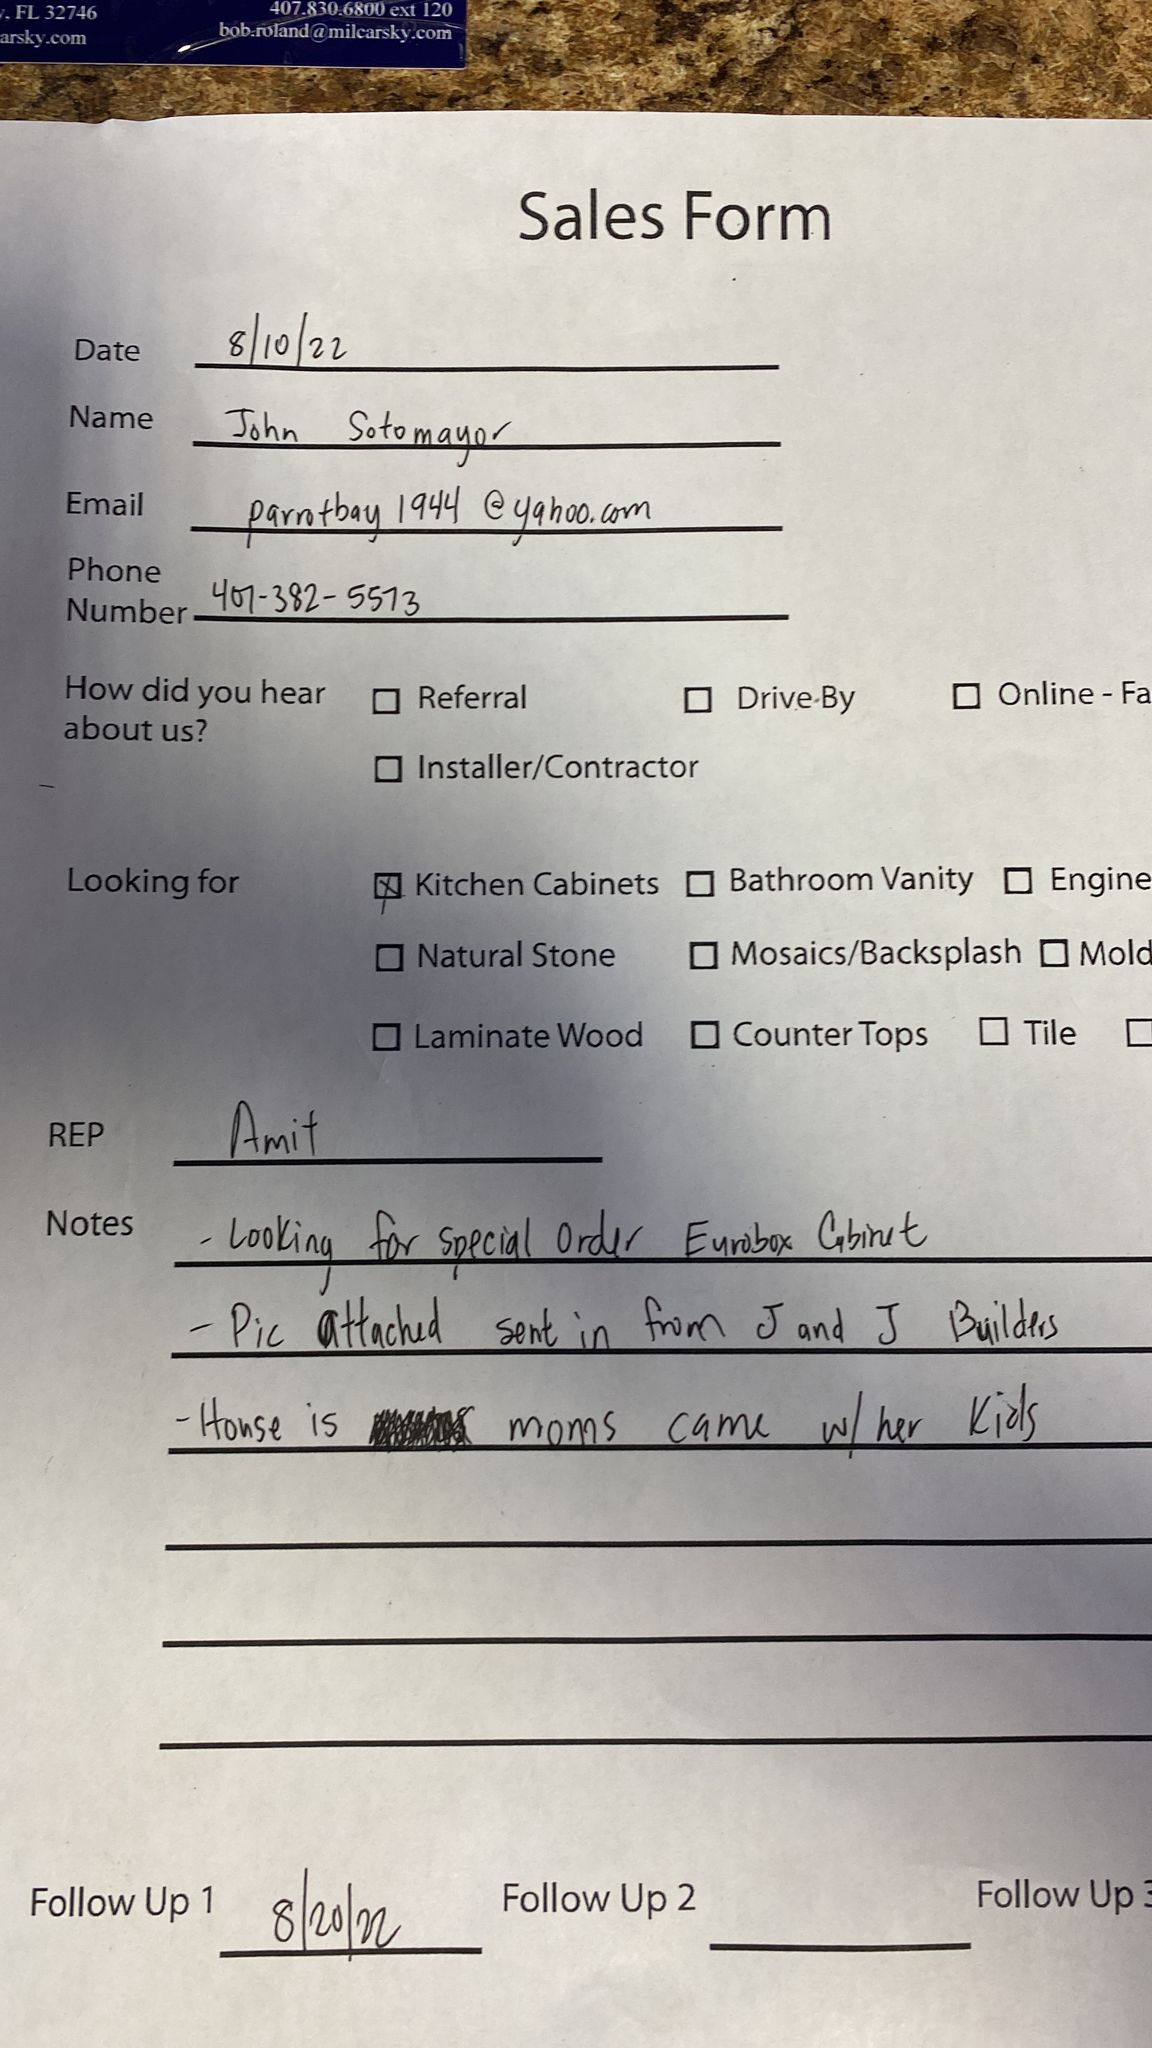 , FL 32746
407.830.6800 ext 120
arsky.com
bob.roland@milcarsky.com
Sales Form
Date 8/10/22
Name John Sotomayor
Email parrotbay1944@yahoo.com
Phone
Number 407-382-5573
How did you hear
about us?
Referral Drive-By Online - Fa
Installer/Contractor
Looking for Kitchen Cabinets Bathroom Vanity Engine
Natural Stone Mosaics/Backsplash Mold
Laminate Wood Counter Tops Tile
REP Amit
Notes - Looking for special Order Eurobox Cabinet
- Pic attached sent in from J and J Builders
- House is moms came w/ her Kids
Follow Up 1 8/20/22 Follow Up 2 Follow Up 3